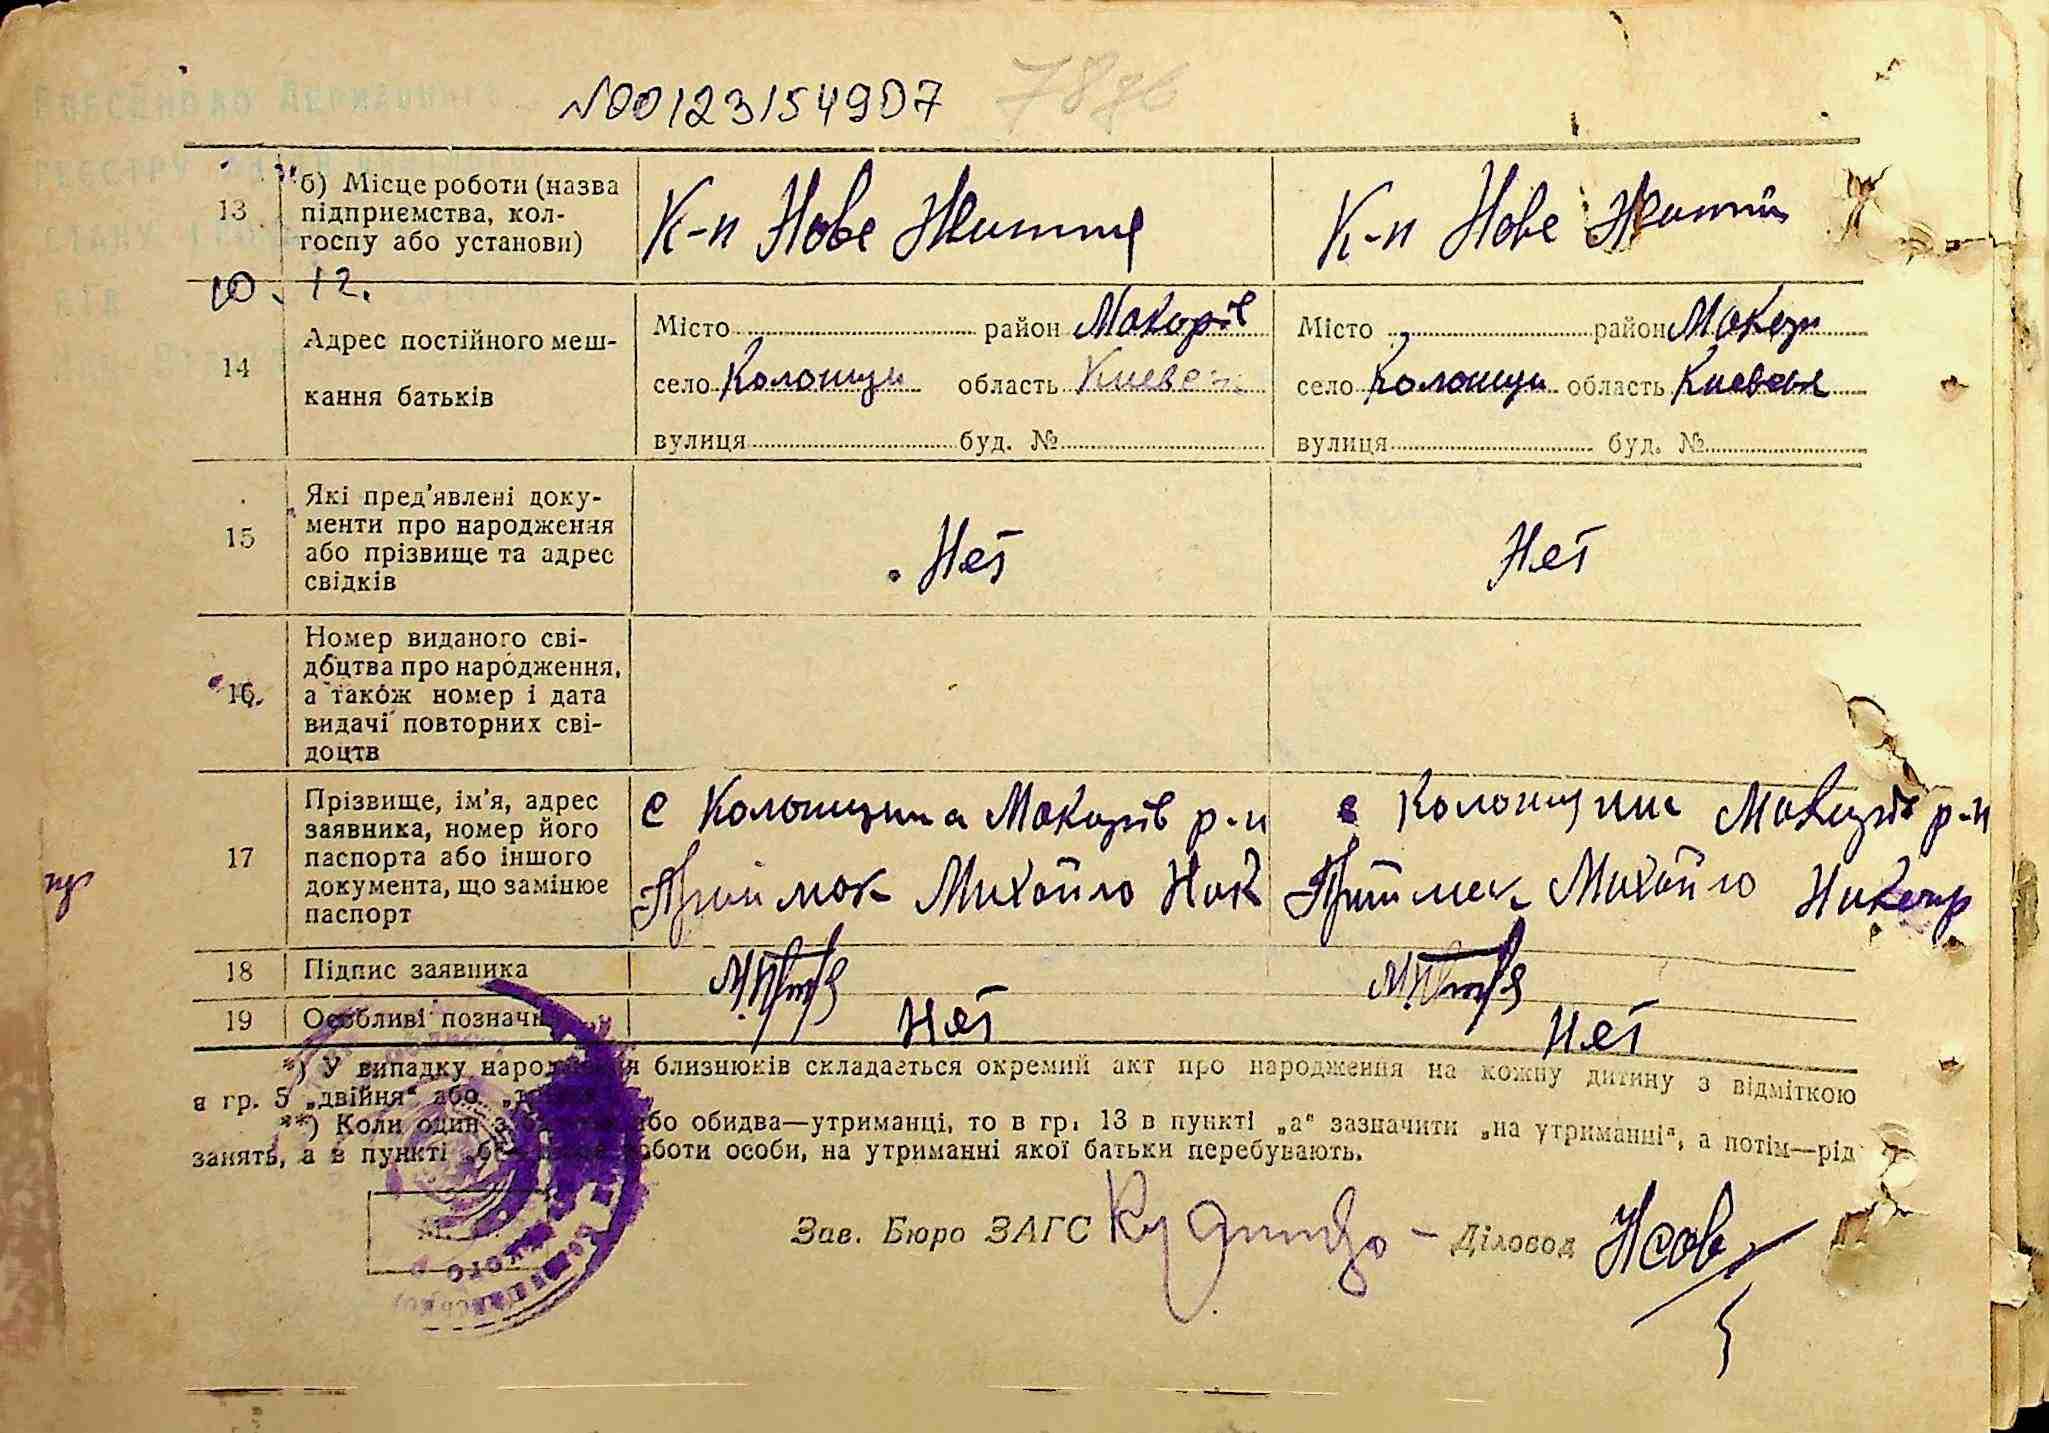 №00123154907
13 б) Місце роботи (назва
підприємства, кол-
госпу або установи)
К-п Нове Життя К-п Нове Життя
10. 12.
14 Адрес постійного меш-
кання батьків
Місто район Макарів
село Колонщи область Киевск
вулиця буд. №
Місто район Макар
село Колонщи область Киевск
вулиця буд. №
15 Які пред'явлені доку-
менти про народження
або прізвище та адрес
свідків
Нет Нет
16 Номер виданого сві-
доцтва про народження,
а також номер і дата
видачі повторних сві-
доцтв
17 Прізвище, ім'я, адрес
заявника, номер його
паспорта або іншого
документа, що замінює
паспорт
с Колонщина Макарів р-н
Приймак Михайло Ник
с Колонщина Макарів р-н
Приймак Михайло Никанр
18 Підпис заявника
19 Особливі позначки
Нет Нет
*) У випадку народження близнюків складається окремий акт про народження на кожну дитину з відміткою
в гр. 5 „двійня“ або
**) Коли один з або обидва—утриманці, то в гр. 13 в пункті „а“ зазначити „на утриманні“, а потім—рід
занять, а в пункті роботи особи, на утриманні якої батьки перебувають.
Зав. Бюро ЗАГС
Діловод